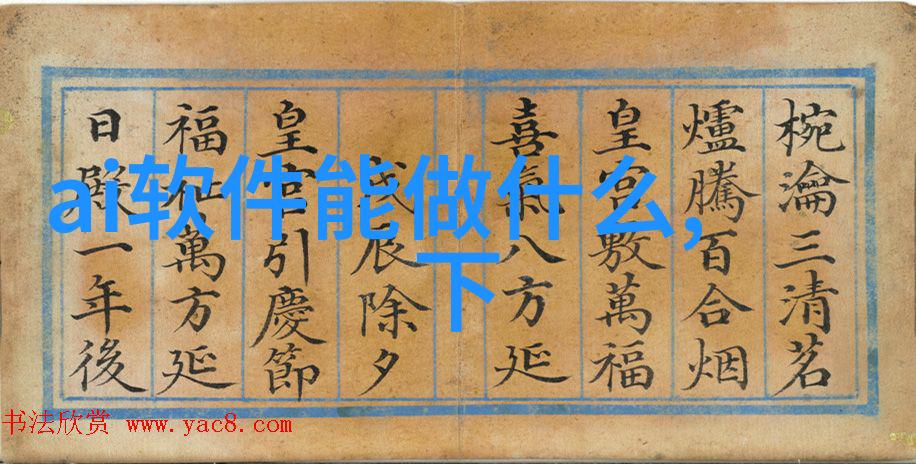 椀瀹三清茗
爐騰百合烟
皇宮敷萬福
喜氣八方延
戊辰除夕
皇宮引慶節
福祉萬方延
日殿一年後
ai软件能做什么,
下
书法欣赏 www.yac8.com